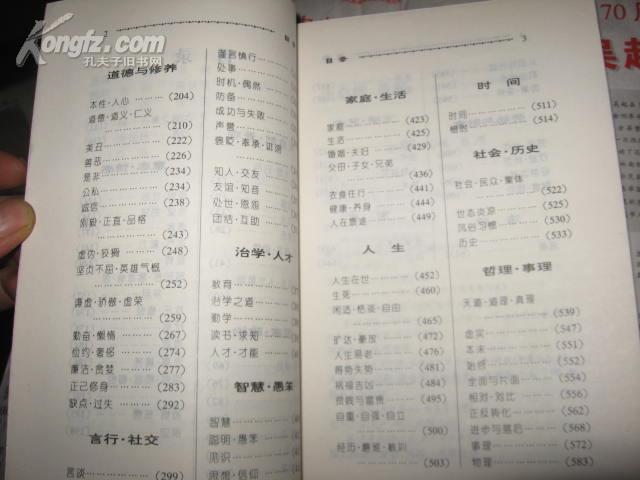 Kongfz.com
孔夫子旧书网
2
目录
道德与修养
本性·人心 (204)
道德·道义·仁义
(210)
美丑 (222)
善恶 (226)
是非 (234)
公私 (234)
诚信 (238)
刚毅·正直·品格
(243)
虚伪·狡猾 (248)
坚贞不屈·英雄气概
(252)
谦虚·骄傲·虚荣
(259)
勤奋·懒惰 (267)
俭约·奢侈 (274)
廉洁·贪婪 (277)
正己修身 (283)
缺点·过失 (292)
言行·社交
言谈 (299)
谨言慎行
处事
时机·偶然
防备
成功与失败
声誉
褒贬·奉承·讥讽
知人·交友
友谊·知音
处世·恩怨
团结·互助
治学·人才
教育
治学之道
勤学
读书·求知
人才·才能
智慧·愚笨
智慧
聪明·愚笨
见识
思想·信仰
目录
3
家庭·生活
家庭 (423)
生活 (425)
婚姻·夫妇 (429)
父母·子女·兄弟
(436)
衣食住行 (441)
健康·养身 (444)
人在旅途 (449)
人生
人生在世 (452)
生死 (460)
闲适·恬淡·自由
(465)
旷达·豪放 (472)
人生易老 (476)
得势失势 (481)
祸福吉凶 (484)
贫贱与富贵 (491)
自重·自强·自立
(500)
经历·磨难·教训
(503)
时间
时间 (511)
惜时 (514)
社会·历史
社会·民众·集体
(522)
世态炎凉 (525)
风俗习惯 (530)
历史 (533)
哲理·事理
天道·道理·真理
(539)
虚实 (547)
本末 (551)
始终 (552)
全面与片面 (554)
相对·对比 (556)
正反转化 (562)
进步与落后 (568)
事理 (572)
物理 (583)
70